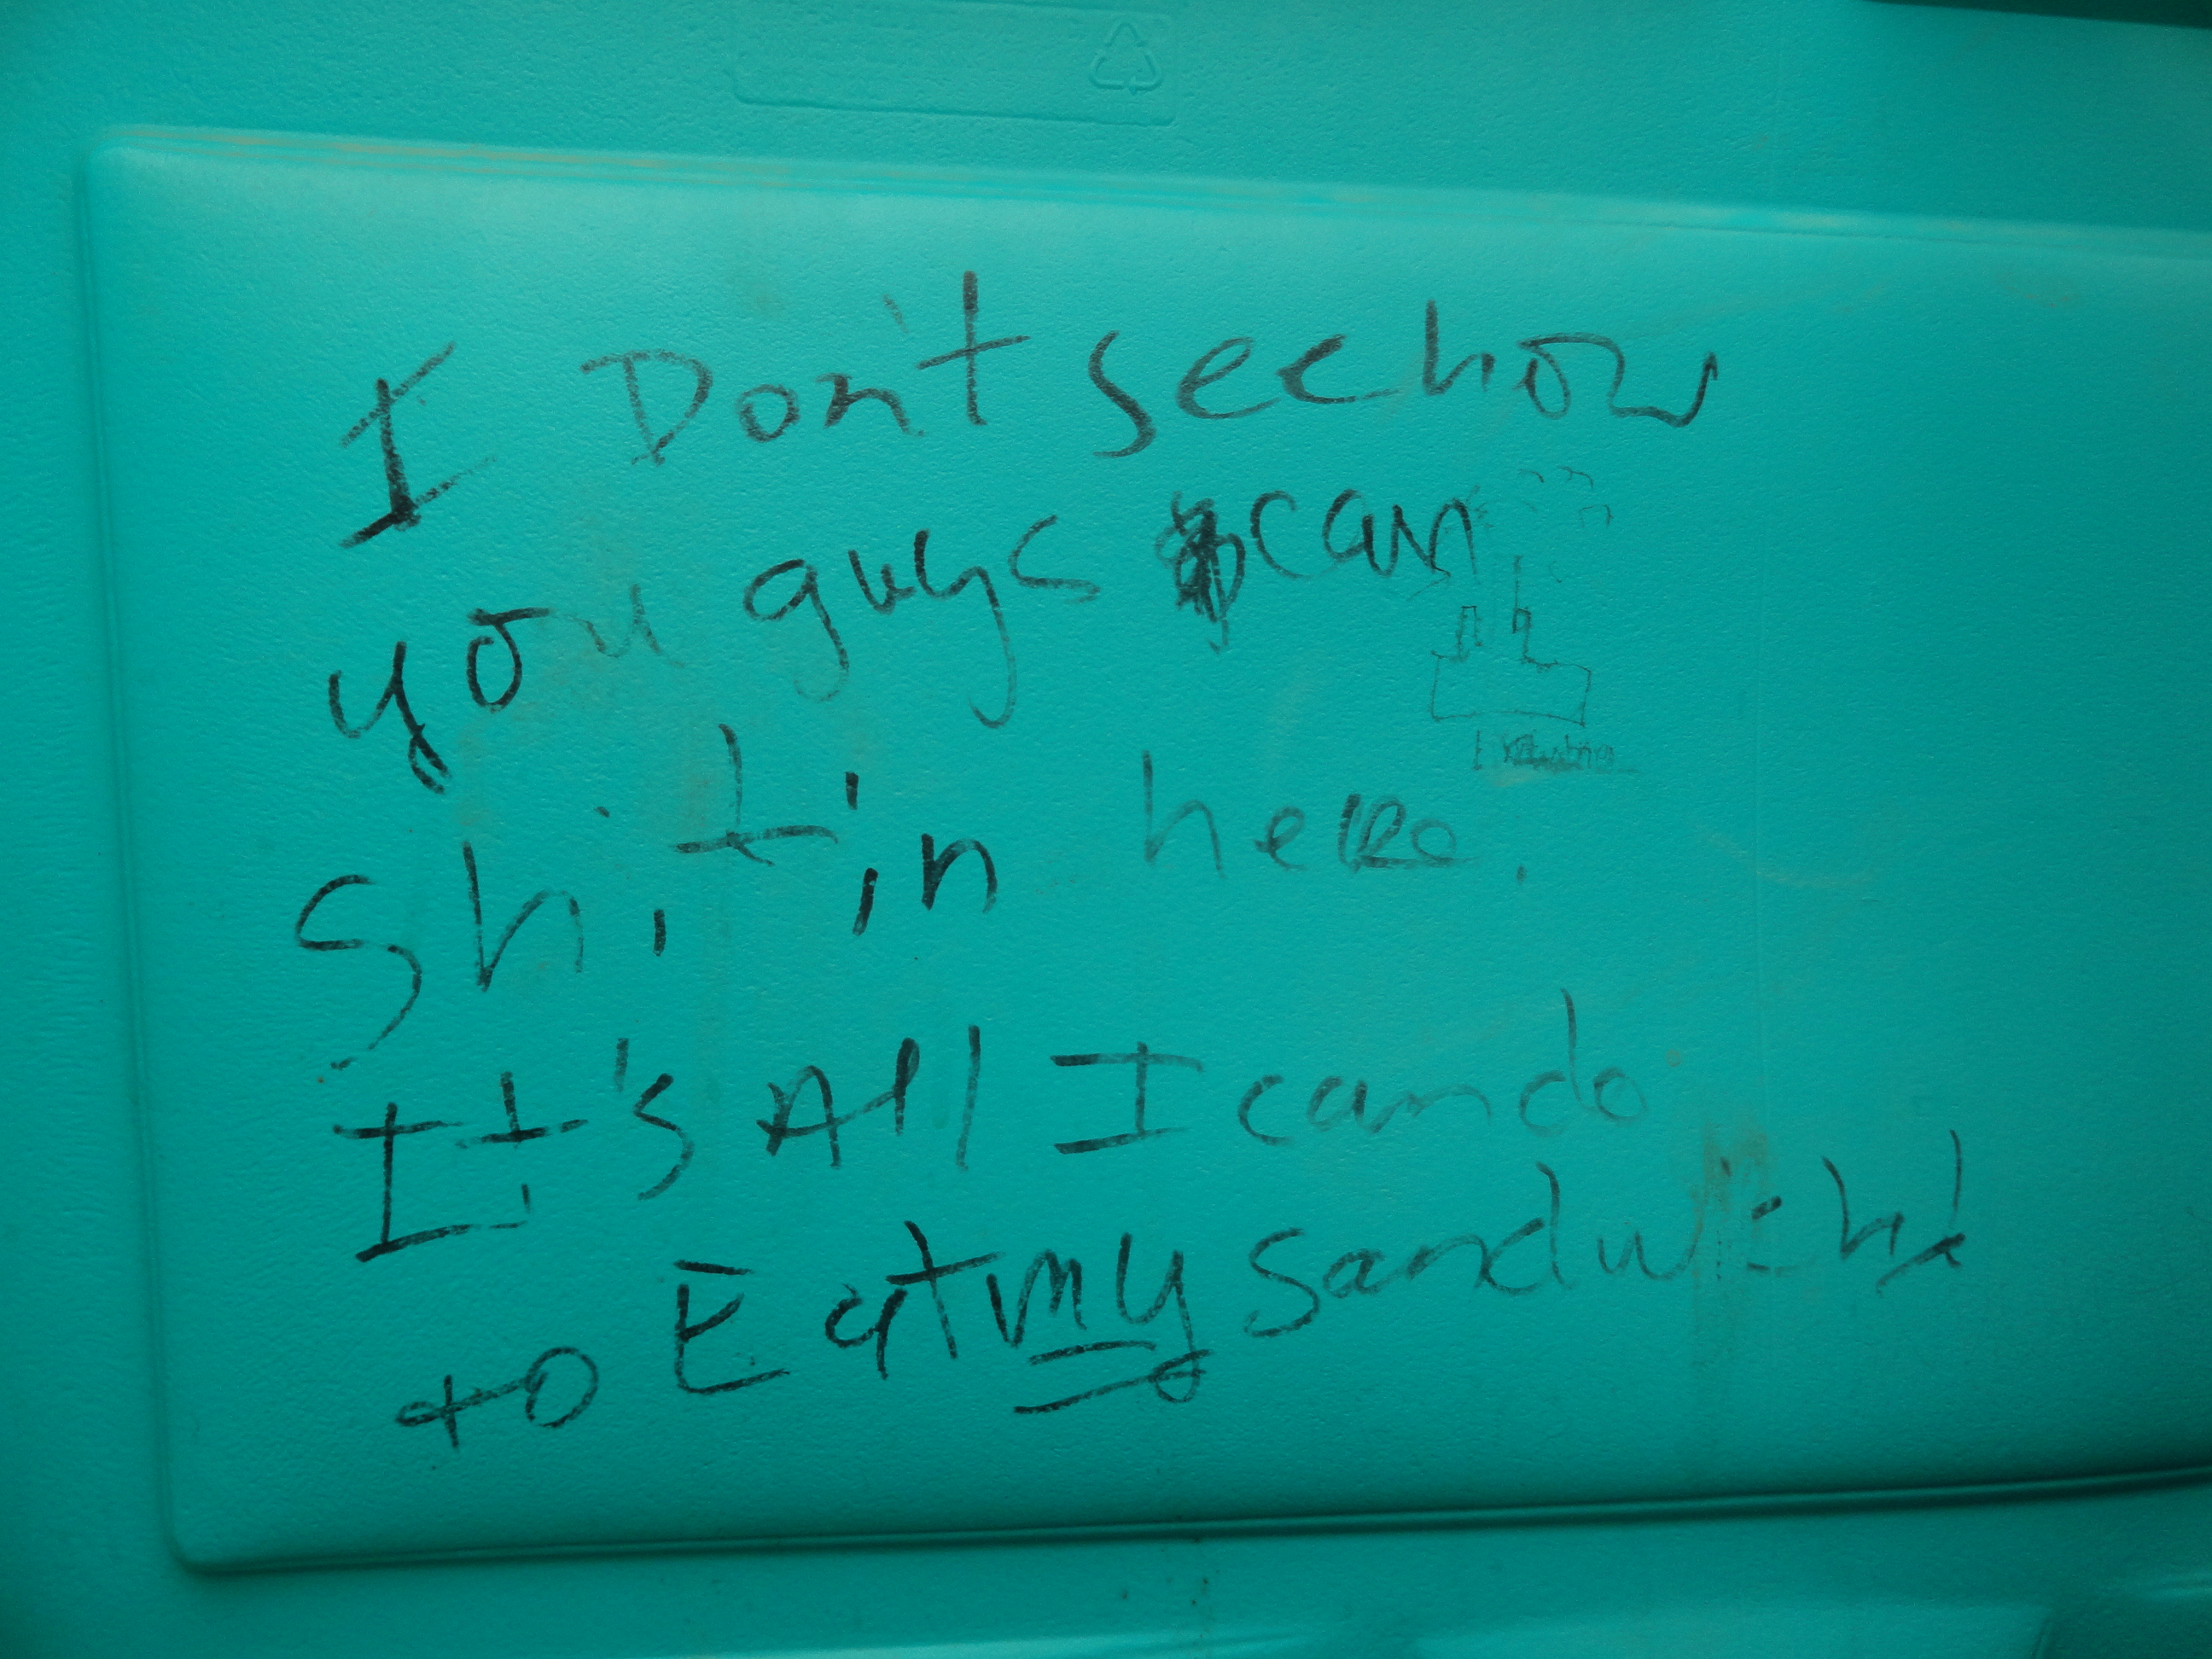 I Don't see how
you guys can
shit in here.
It's All I can do
to Eat my sandwich!